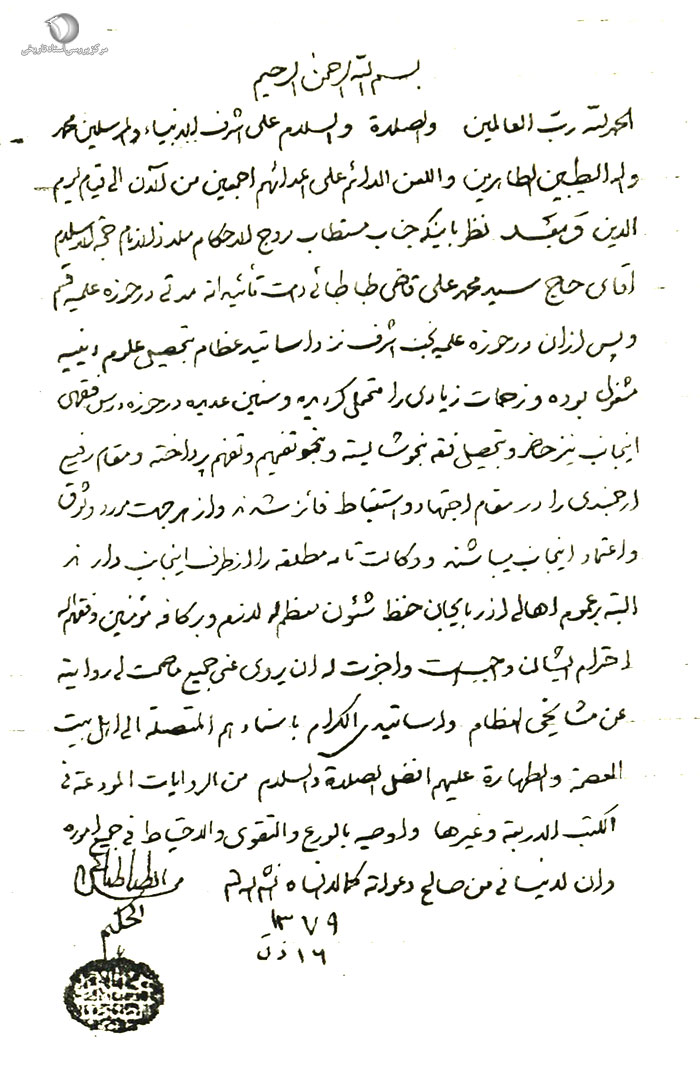 مرکز بررسی اسناد تاریخی
بسم الله الرحمن الرحیم
الحمد لله رب العالمین والصلاة والسلام علی اشرف الانبیاء والمرسلین محمد
واله الطیبین الطاهرین واللعن الدائم علی اعدائهم اجمعین من الان الی قیام یوم
الدین وبعد نظر باینکه جناب مستطاب مروج الاحکام ملاذ الانام حجة الاسلام
آقای حاج سید محمد علی قاضی طباطبائی دامت تائیداته مدتی در حوزه علمیه قم
و پس از ان در حوزه علمیه نجف اشرف نزد اساتید عظام بتحصیل علوم دینیه
مشغول بوده و زحمات زیادی را متحمل گردیده و سنین عدیده در حوزه درس فقهی
اینجانب نیز حاضر و بتحصیل فقه بنحو شایسته و بنحو تفهیم و تفهم پرداخته و مقام رفیع
ارجمندی را در مقام اجتهاد و استنباط فائز شدند و از هر جهت مورد وثوق
و اعتماد اینجانب میباشند و وکالت تامه مطلقه را از طرف اینجانب دارند
البته بر عموم اهالی اذربایجان حفظ شئون معظم له لازم و بر کافه مؤمنین وفقهم الله
احترام ایشان واجب است واجزت له ان یروی عنی جمیع ما صحت لی روایته
عن مشایخی العظام واساتیدی الکرام باسنادهم المتصلة الی اهل بیت
العصمة والطهارة علیهم افضل الصلاة والسلام من الروایات المودعة فی
الکتب الاربعة وغیرها واوصیه بالورع والتقوی والاحتیاط فی جمیع اموره
وان لا ینسانی من صالح دعواته کما لا انساه انشاء الله
محسن الطباطبائی
الحکیم
۱۳۷۹
۱۶ ذق